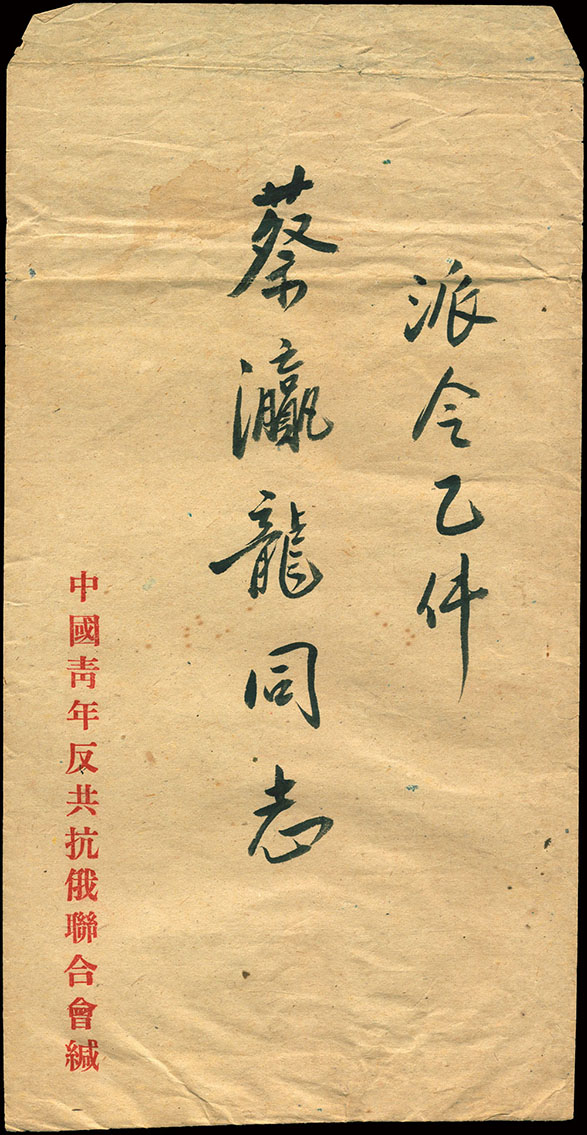 派令乙件
蔡瀛龍同志
中國青年反共抗俄聯合會緘